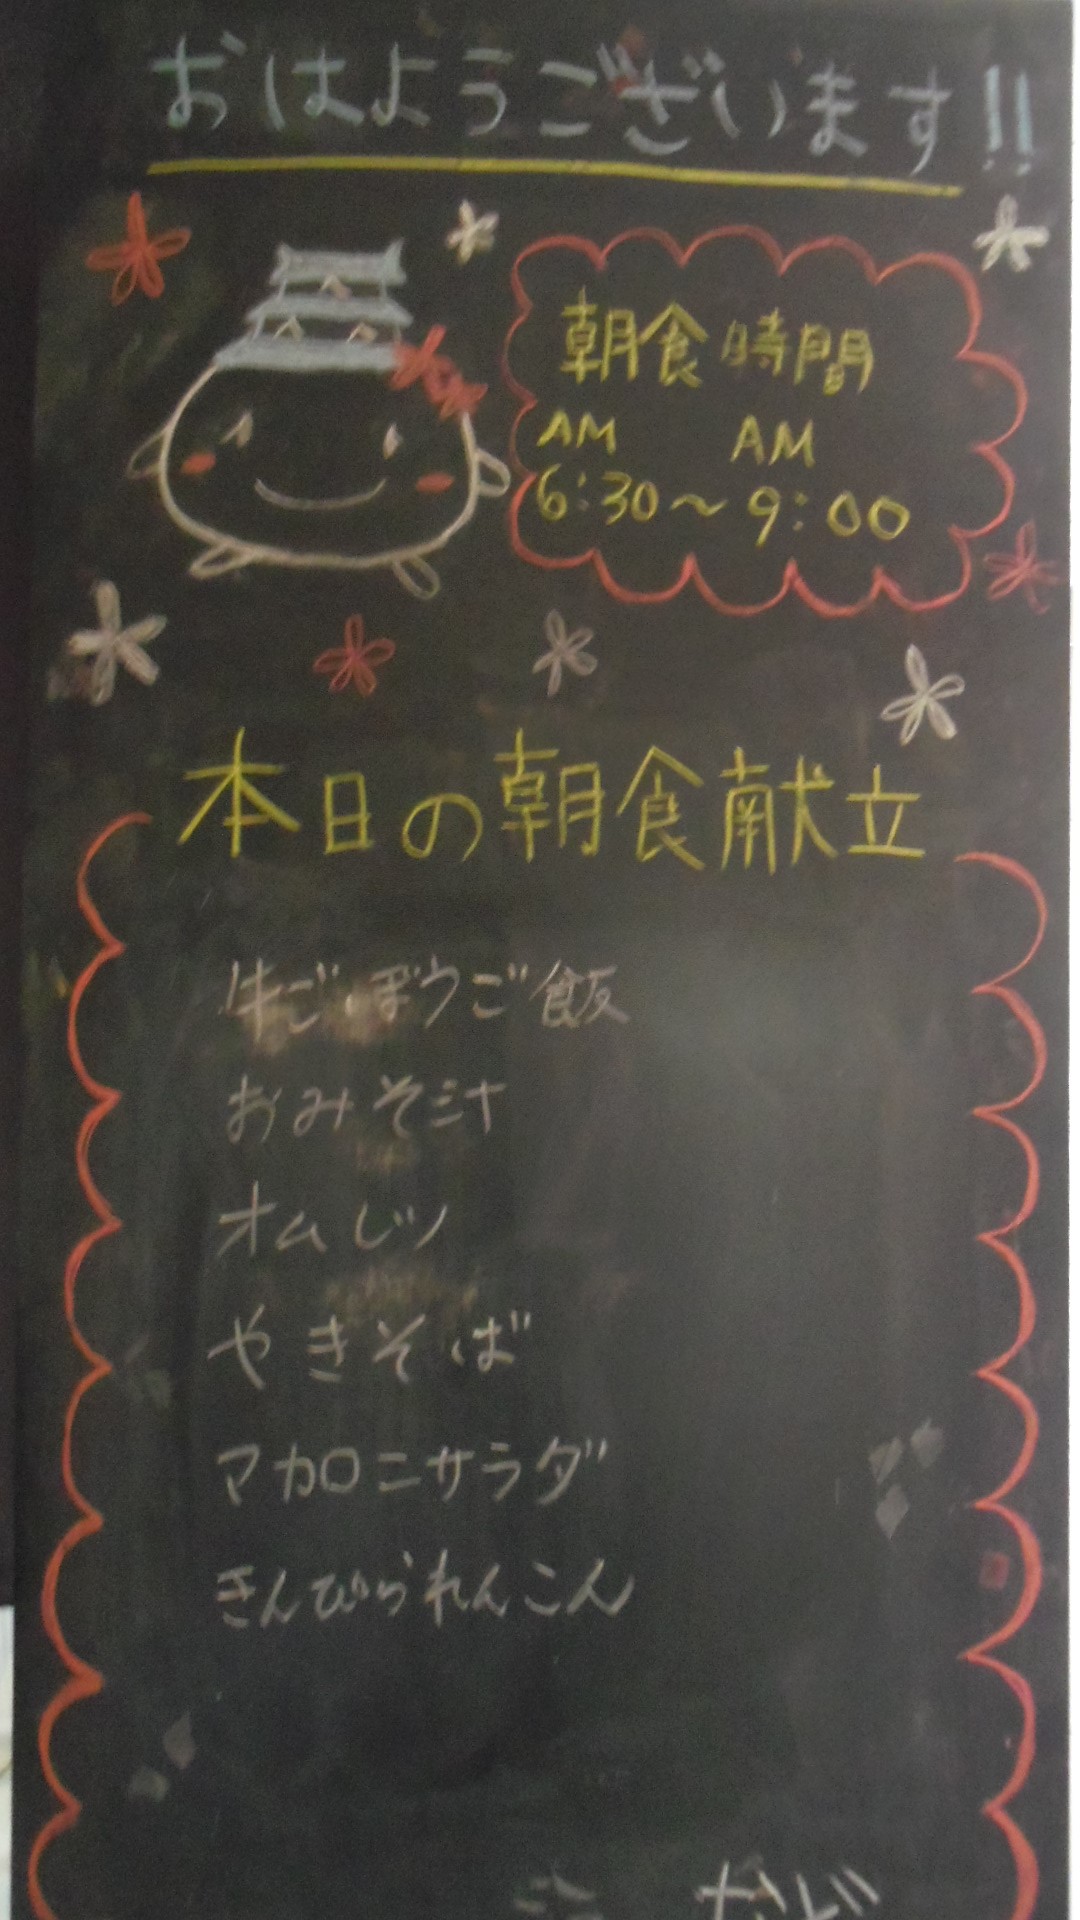 おはようございます!!
朝食時間
AM AM
6:30～9:00
本日の朝食献立
牛ごぼうご飯
おみそ汁
オムレツ
やきそば
マカロニサラダ
きんぴられんこん